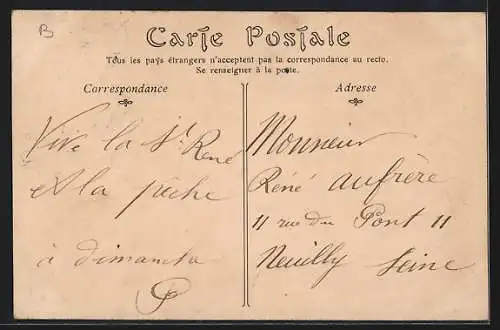 B
Carte Postale
Tous les pays étrangers n'acceptent pas la correspondance au recto.
Se renseigner à la poste.
Correspondance
Adresse
Vive la St René
et la pêche
à dimanche
Monsieur
René Aufrère
11 rue du Pont 11
Neuilly Seine